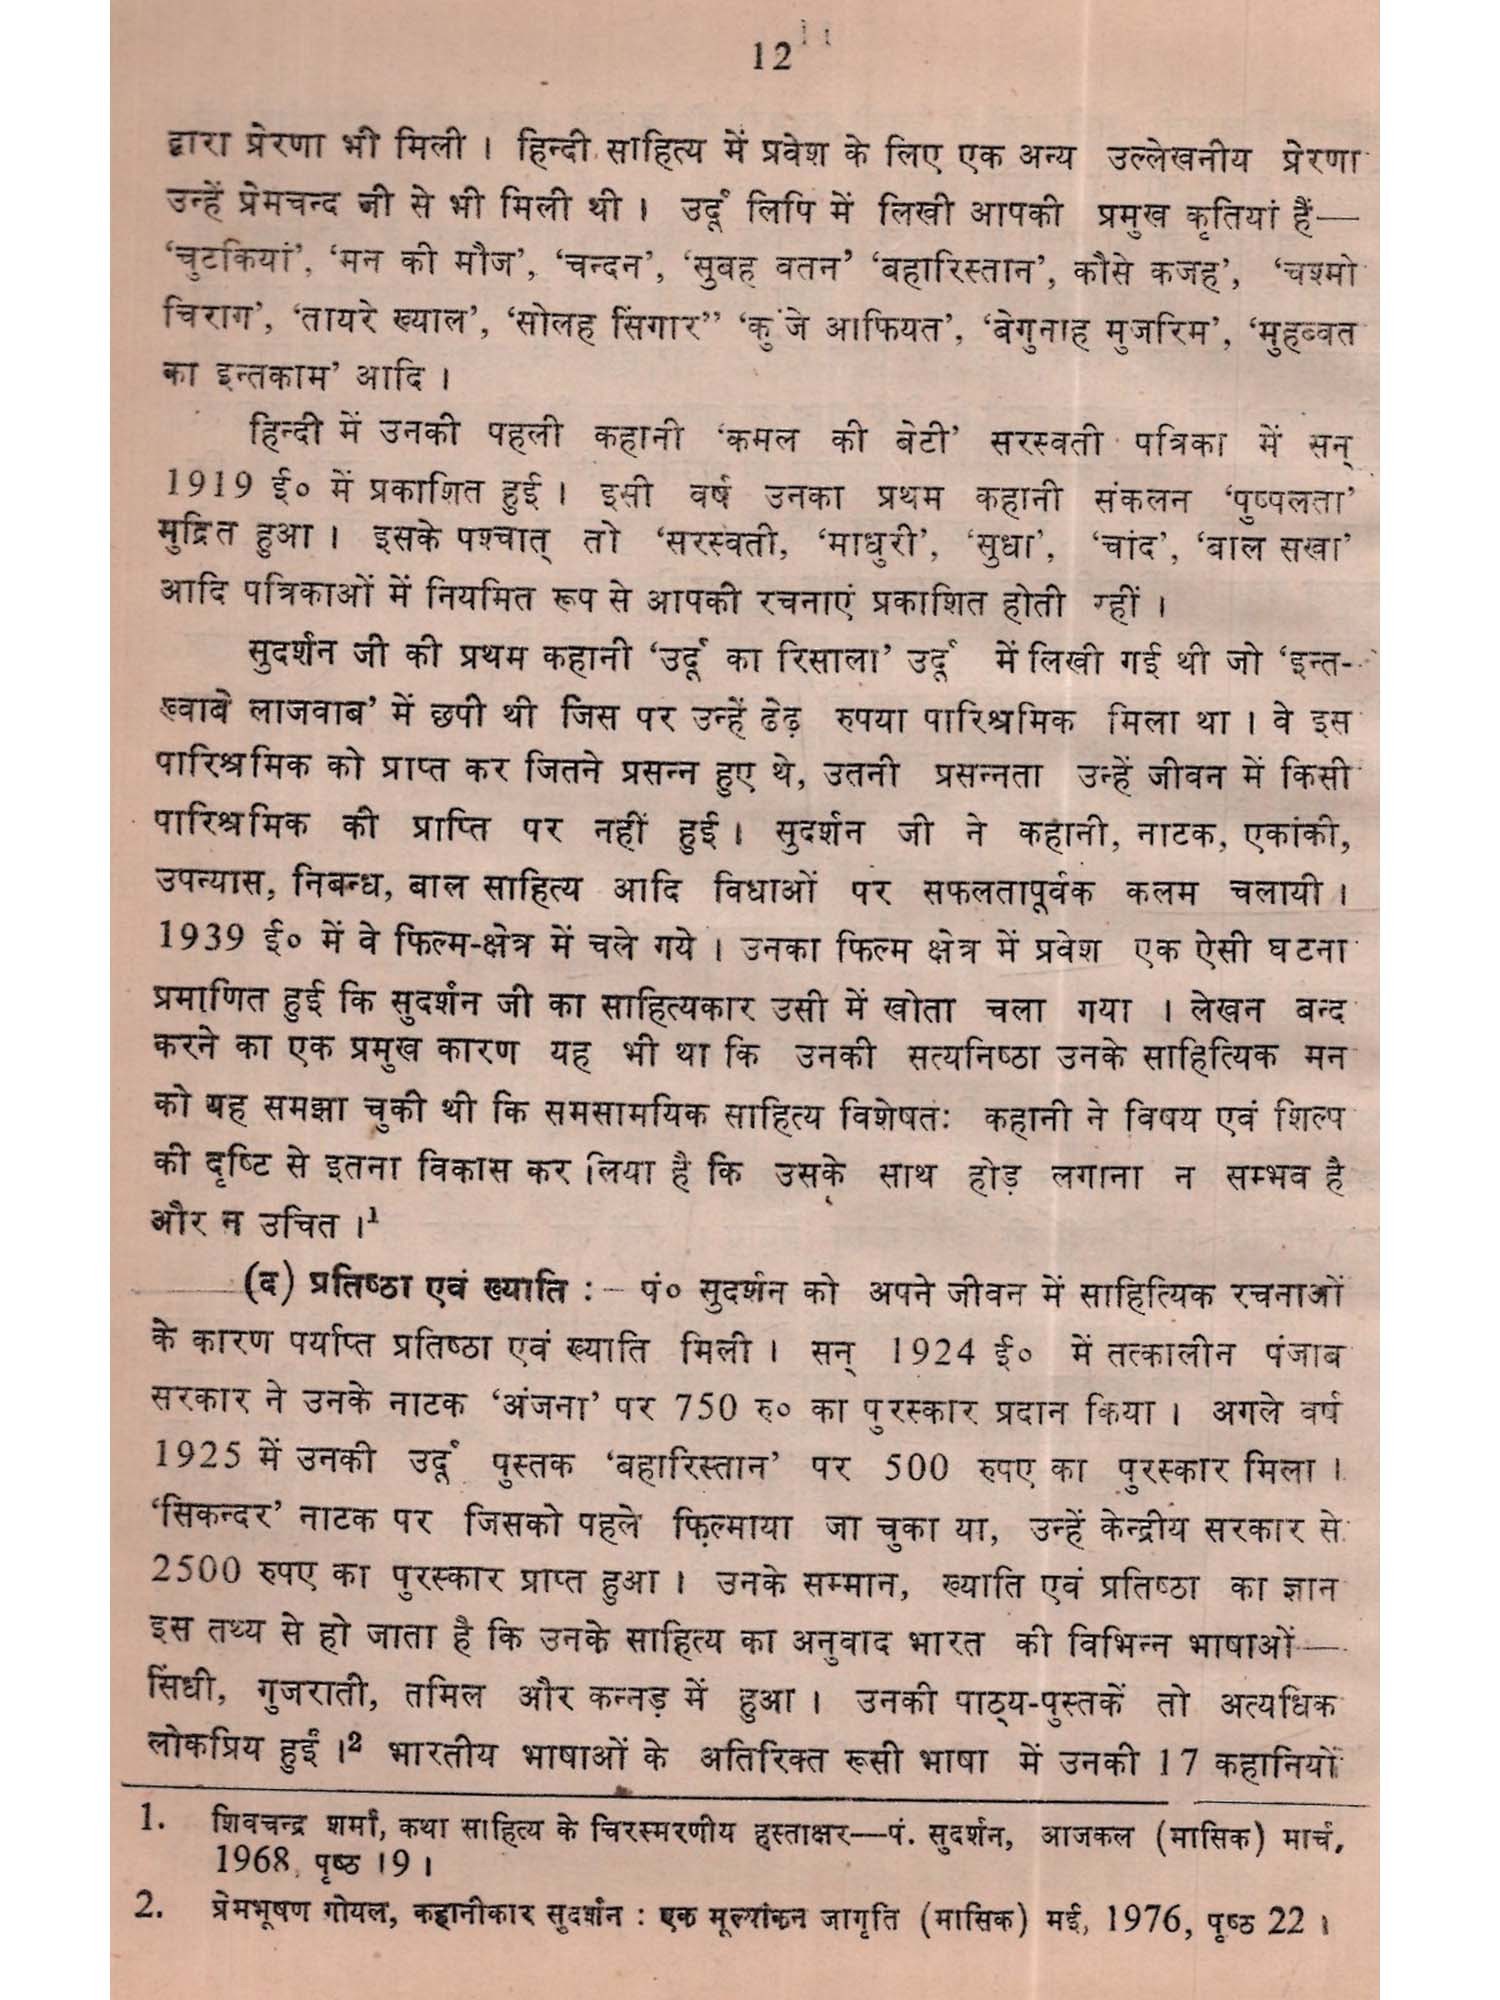 12
द्वारा प्रेरणा भी मिली । हिन्दी साहित्य में प्रवेश के लिए एक अन्य उल्लेखनीय प्रेरणा
उन्हें प्रेमचन्द जी से भी मिली थी । उर्दू लिपि में लिखी आपकी प्रमुख कृतियां हैं—
‘चुटकियां’, ‘मन की मौज’, ‘चन्दन’, ‘सुबह वतन’ ‘बहारिस्तान’, कौसे कजह’, ‘चश्मो
चिराग’, ‘तायरे ख्याल’, ‘सोलह सिंगार’’ ‘कुंजे आफियत’, ‘बेगुनाह मुजरिम’, ‘मुहब्बत
का इन्तकाम’ आदि ।
हिन्दी में उनकी पहली कहानी ‘कमल की बेटी’ सरस्वती पत्रिका में सन्
1919 ई० में प्रकाशित हुई । इसी वर्ष उनका प्रथम कहानी संकलन ‘पुष्पलता’
मुद्रित हुआ । इसके पश्चात् तो ‘सरस्वती, ‘माधुरी’, ‘सुधा’, ‘चांद’, ‘बाल सखा’
आदि पत्रिकाओं में नियमित रूप से आपकी रचनाएं प्रकाशित होती रहीं ।
सुदर्शन जी की प्रथम कहानी ‘उर्दू का रिसाला’ उर्दू में लिखी गई थी जो ‘इन्त-
ख्वाबे लाजवाब’ में छपी थी जिस पर उन्हें ढेढ़ रुपया पारिश्रमिक मिला था । वे इस
पारिश्रमिक को प्राप्त कर जितने प्रसन्न हुए थे, उतनी प्रसन्नता उन्हें जीवन में किसी
पारिश्रमिक की प्राप्ति पर नहीं हुई । सुदर्शन जी ने कहानी, नाटक, एकांकी,
उपन्यास, निबन्ध, बाल साहित्य आदि विधाओं पर सफलतापूर्वक कलम चलायी ।
1939 ई० में वे फिल्म-क्षेत्र में चले गये । उनका फिल्म क्षेत्र में प्रवेश एक ऐसी घटना
प्रमाणित हुई कि सुदर्शन जी का साहित्यकार उसी में खोता चला गया । लेखन बन्द
करने का एक प्रमुख कारण यह भी था कि उनकी सत्यनिष्ठा उनके साहित्यिक मन
को यह समझा चुकी थी कि समसामयिक साहित्य विशेषतः कहानी ने विषय एवं शिल्प
की दृष्टि से इतना विकास कर लिया है कि उसके साथ होड़ लगाना न सम्भव है
और न उचित ।¹
(द) प्रतिष्ठा एवं ख्याति :– पं० सुदर्शन को अपने जीवन में साहित्यिक रचनाओं
के कारण पर्याप्त प्रतिष्ठा एवं ख्याति मिली । सन् 1924 ई० में तत्कालीन पंजाब
सरकार ने उनके नाटक ‘अंजना’ पर 750 रु० का पुरस्कार प्रदान किया । अगले वर्ष
1925 में उनकी उर्दू पुस्तक ‘बहारिस्तान’ पर 500 रुपए का पुरस्कार मिला ।
‘सिकन्दर’ नाटक पर जिसको पहले फ़िल्माया जा चुका या, उन्हें केन्द्रीय सरकार से
2500 रुपए का पुरस्कार प्राप्त हुआ । उनके सम्मान, ख्याति एवं प्रतिष्ठा का ज्ञान
इस तथ्य से हो जाता है कि उनके साहित्य का अनुवाद भारत की विभिन्न भाषाओं—
सिंधी, गुजराती, तमिल और कन्नड़ में हुआ । उनकी पाठ्य-पुस्तकें तो अत्यधिक
लोकप्रिय हुईं ।² भारतीय भाषाओं के अतिरिक्त रूसी भाषा में उनकी 17 कहानियों
1. शिवचन्द्र शर्मा, कथा साहित्य के चिरस्मरणीय हस्ताक्षर—पं. सुदर्शन, आजकल (मासिक) मार्च,
1968, पृष्ठ 19 ।
2. प्रेमभूषण गोयल, कहानीकार सुदर्शन : एक मूल्यांकन जागृति (मासिक) मई, 1976, पृष्ठ 22 ।